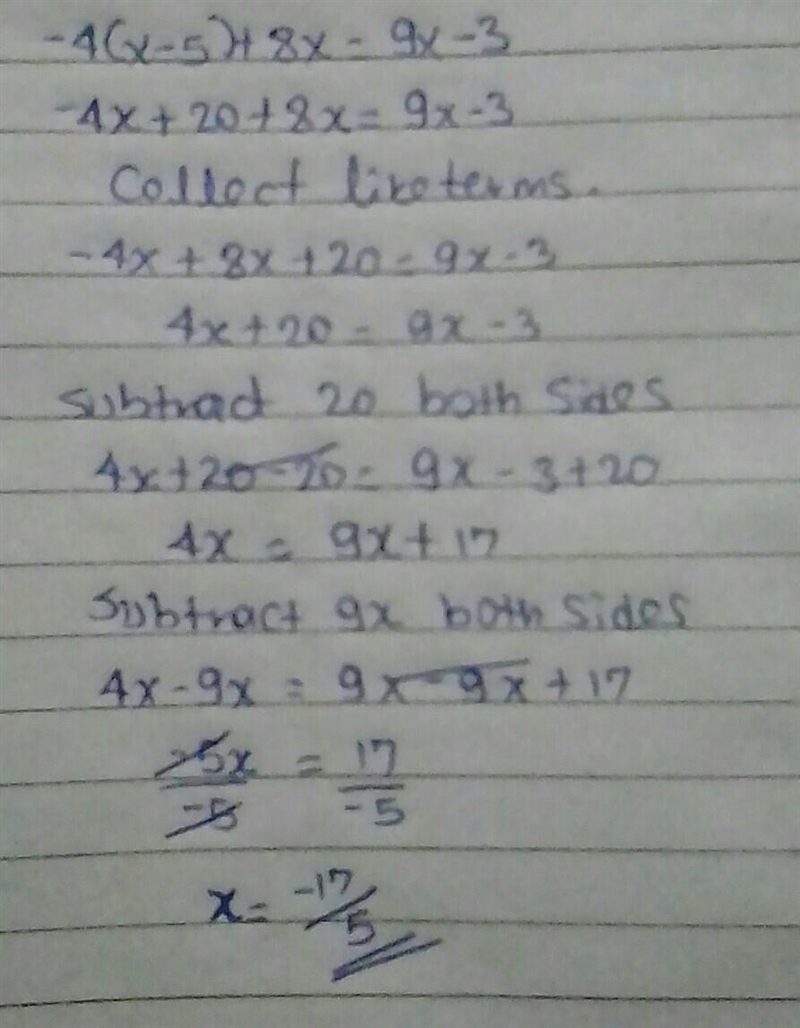 -4(x-5)+8x = 9x-3
-4x+20+8x = 9x-3
Collect like terms.
-4x+8x+20 = 9x-3
4x+20 = 9x-3
Subtract 20 both sides
4x+20-20 = 9x-3+20
4x = 9x+17
Subtract 9x both sides
4x-9x = 9x-9x+17
-5x/-5 = 17/-5
x = -17/5